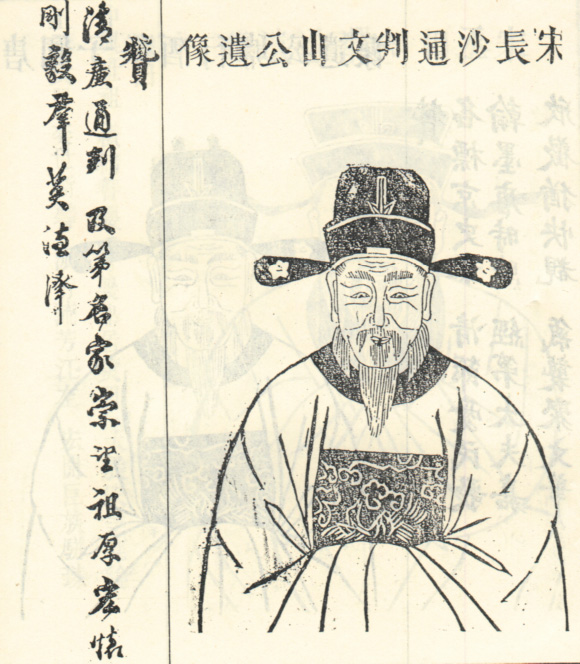 宋長沙通判文山公遺像
贊
清廉通判 及第名家 崇望祖厚
剛毅羣英德澤